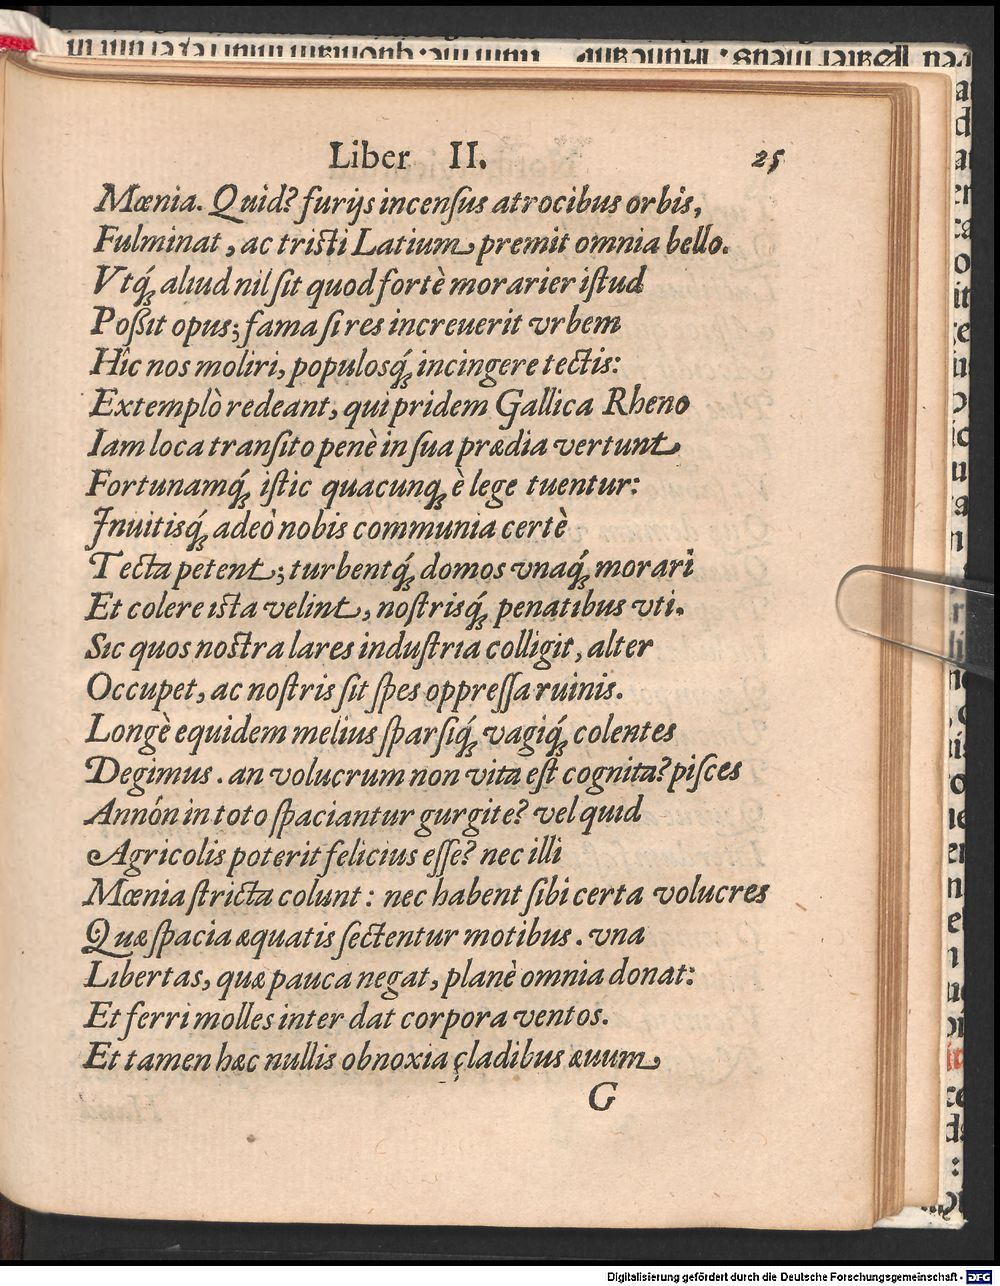 Liber II. 25
Mœnia. Quid? furijs incensus atrocibus orbis,
Fulminat, ac tristi Latium premit omnia bello.
Vtq́; aliud nil sit quod fortè morarier istud
Poßit opus; fama si res increuerit vrbem
Hîc nos moliri, populosq́; incingere tectis:
Extemplò redeant, qui pridem Gallica Rheno
Iam loca transito penè in sua prædia vertunt
Fortunamq́; istic quacunq; è lege tuentur:
Inuitisq́; adeò nobis communia certè
Tecta petent; turbentq́; domos vnaq́; morari
Et colere ista velint, nostrisq́; penatibus vti.
Sic quos nostra lares industria colligit, alter
Occupet, ac nostris sit spes oppressa ruinis.
Longè equidem melius sparsiq́; vagiq́; colentes
Degimus. an volucrum non vita est cognita? pisces
Annón in toto spaciantur gurgite? vel quid
Agricolis poterit felicius esse? nec illi
Mœnia stricta colunt: nec habent sibi certa volucres
Quæ spacia æquatis sectentur motibus. vna
Libertas, quæ pauca negat, planè omnia donat:
Et ferri molles inter dat corpora ventos.
Et tamen hæc nullis obnoxia cladibus æuum
G
Digitalisierung gefördert durch die Deutsche Forschungsgemeinschaft - DFG